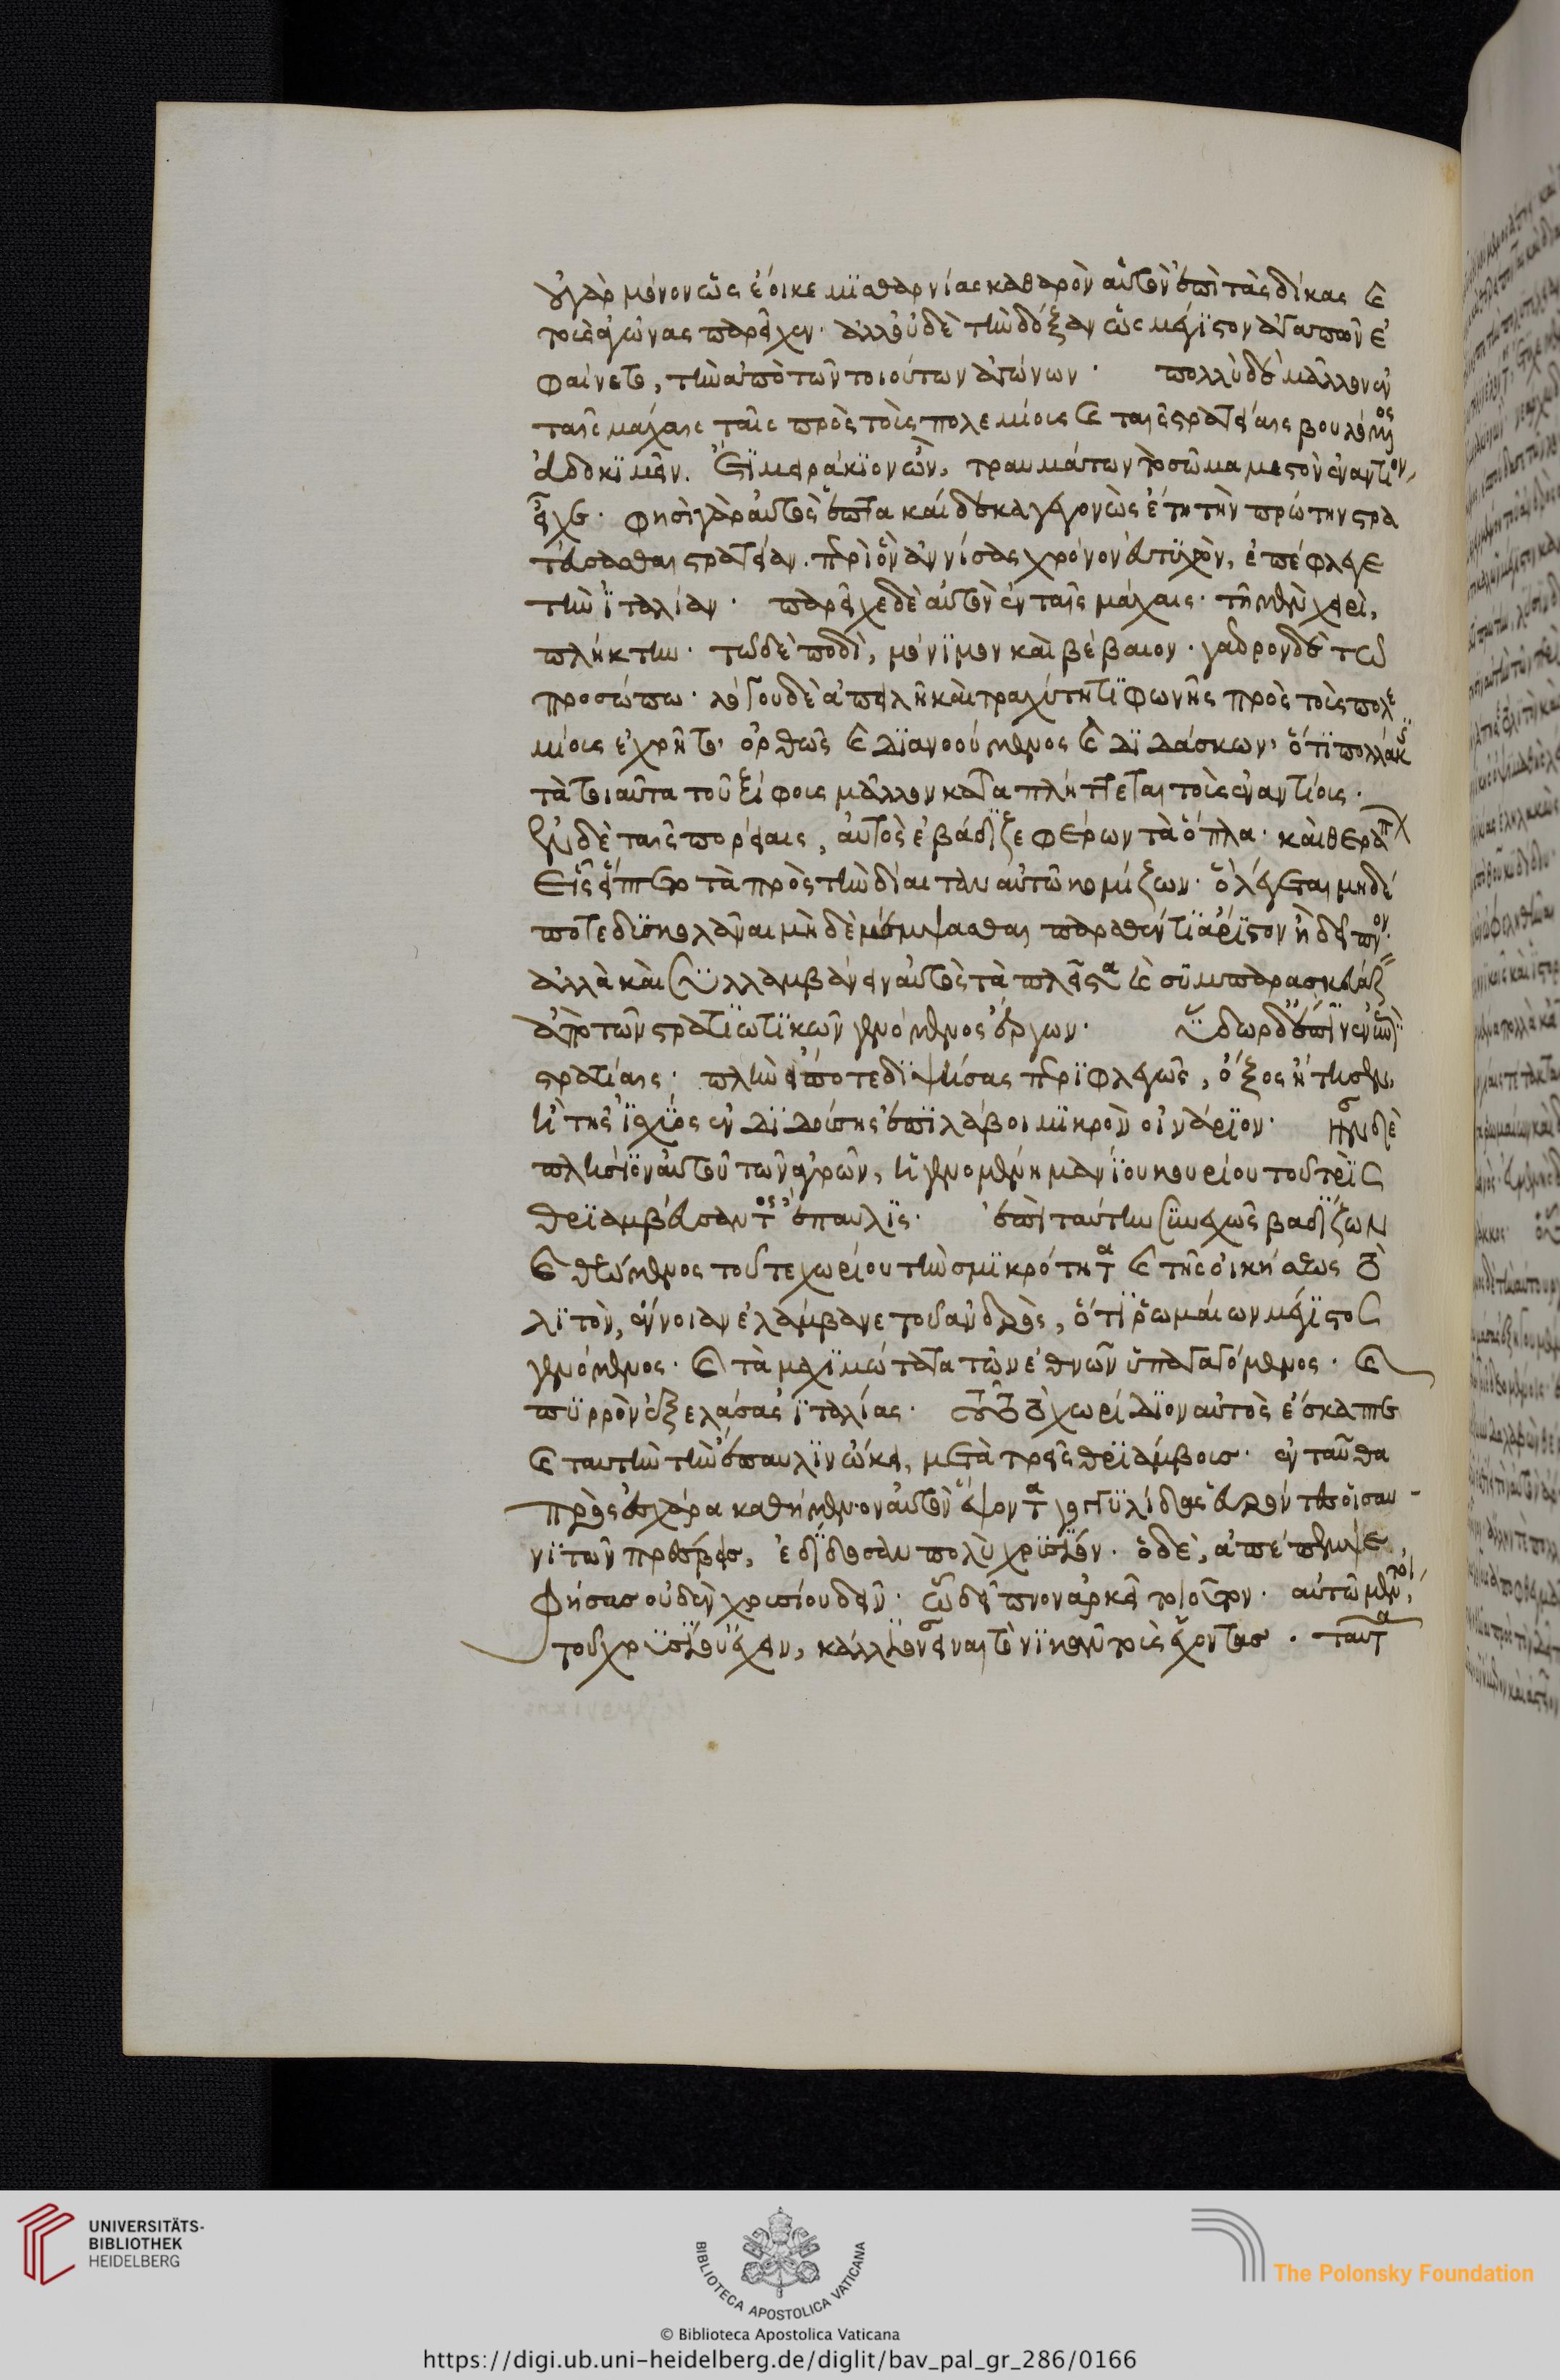 οὐ γὰρ μόνον ὡς ἔοικε μισθαρνίας καθαρὸν αὑτὸν ἐπὶ τὰς δίκας καὶ
τοὺς ἀγώνας παρεῖχεν· ἀλλ' οὐδὲ τὴν δόξαν ὡς μέγιστον ἀγαπῶν ἐ
φαίνετο, τὴν ἀπὸ τῶν τοιούτων ἀγώνων· πολλὺ δὲ μᾶλλον ἐν
ταῖς μάχαις ταῖς πρὸς τοὺς πολεμίους καὶ ταῖς στρατείαις βουλόμενος
εὐδοκιμεῖν. Ἔτι μειράκιον ὢν, τραυμάτων τὸ σῶμα μεστὸν ἐναντίον,
εἶχε· φησὶ γὰρ αὐτὸς ἑπτα καίδεκα γεγονὼς ἔτη τὴν πρώτην στρα
τεύσασθαι στρατείαν. περὶ ὃν ἀννίβας χρόνον εὐτυχὸν, ἐπέφλεγε
τὴν ἰταλίαν· παρεῖχε δὲ αὑτὸν ἐν ταῖς μάχαις· τῆ μὲν χειρὶ,
πλήκτην· τῶ δὲ ποδὶ, μόνιμον καὶ βέβαιον· γαῦρον δὲ τῶ
προσώπω· λόγου δὲ ἀπειλῆ καὶ τραχύτητι φωνῆς πρὸς τοὺς πολε
μίους ἐχρῆτο· ὀρθῶς καὶ διανοούμενος καὶ διδάσκων· ὅτι πολλάκις
τὰ τοιαῦτα τοῦ ξίφους μᾶλλον καταπλήττεται τοὺς ἐναντίους·
ἐν δὲ ταῖς πορείαις, αὐτὸς ἐβάδιζε φέρων τὰ ὅπλα· καὶ θεράπων
εἷς εἵπετο τὰ πρὸς τὴν δίαιταν αὐτῶ κομίζων· ὃ λέγεται μηδέ
ποτε δυσκολᾶναι μὴ δὲ μέμψασθαι παραθέντι ἄριστον ἢ δεῖπνον·
ἀλλὰ καὶ συλλαμβάνειν αὐτὸς τὰ πλεῖστα καὶ συμπαρασκευάζειν
ἀπὸ τῶν στρατιωτικῶν γενόμενος ἔργων· ὕδωρ δ' ἔπινεν ἐπὶ
στρατείαις· πλὴν εἴποτε διψήσας περιφλεγῶς, ὄξος ἤτησεν,
ἢ τῆς ἰσχύος ἐνδιδούσης ἐπιλάβοι μικρὸν οἰνάριον· Ἦν δὲ
πλησίον αὐτοῦ τῶν ἀγρῶν, ἡ γενομένη μανίου κουρίου τοῦ τρὶς
θριαμβεύσαντος ἔπαυλις· ἐπὶ ταύτην συνεχῶς βαδίζων
καὶ θεώμενος τοῦ τε χωρίου τὴν σμικρότητα καὶ τῆς οἰκήσεως τὸ
λιτὸν, ἔννοιαν ἐλάμβανε τοῦ ἀνδρὸς, ὅτι ῥωμαίων μέγιστος
γενόμενος· καὶ τὰ μαχιμώτατα τῶν ἐθνῶν ὑπαγαγόμενος· καὶ
πύρρον ἐξελάσας ἰταλίας· τοῦτο τὸ χωρίδιον αὐτὸς ἔσκαπτε
καὶ ταυτὴν τὴν ἔπαυλιν ὤκει, μετὰ τρεῖς θριάμβους· ἐνταῦθα
πρὸς ἐσχάρα καθήμενον αὐτὸν ἕψοντα γογγυλίδας εὑρόντες οἱ σαυ-
νιτῶν πρέσβεις, ἐδίδοσαν πολὺ χρυσίον· ὁ δὲ, ἀπέπεμψε,
φήσας οὐδὲν χρυσίου δεῖν· ᾧ δεῖπνον ἀρκεῖ τοιοῦτον· αὐτῶ μέντοι,
τοῦ χρυσίον ἔχειν, κάλλιον εἶναι τὸ νικᾶν τοὺς ἔχοντας. ταῦτα
UNIVERSITÄTS-
BIBLIOTHEK
HEIDELBERG
BIBLIOTECA APOSTOLICA VATICANA
The Polonsky Foundation
© Biblioteca Apostolica Vaticana
https://digi.ub.uni-heidelberg.de/diglit/bav_pal_gr_286/0166